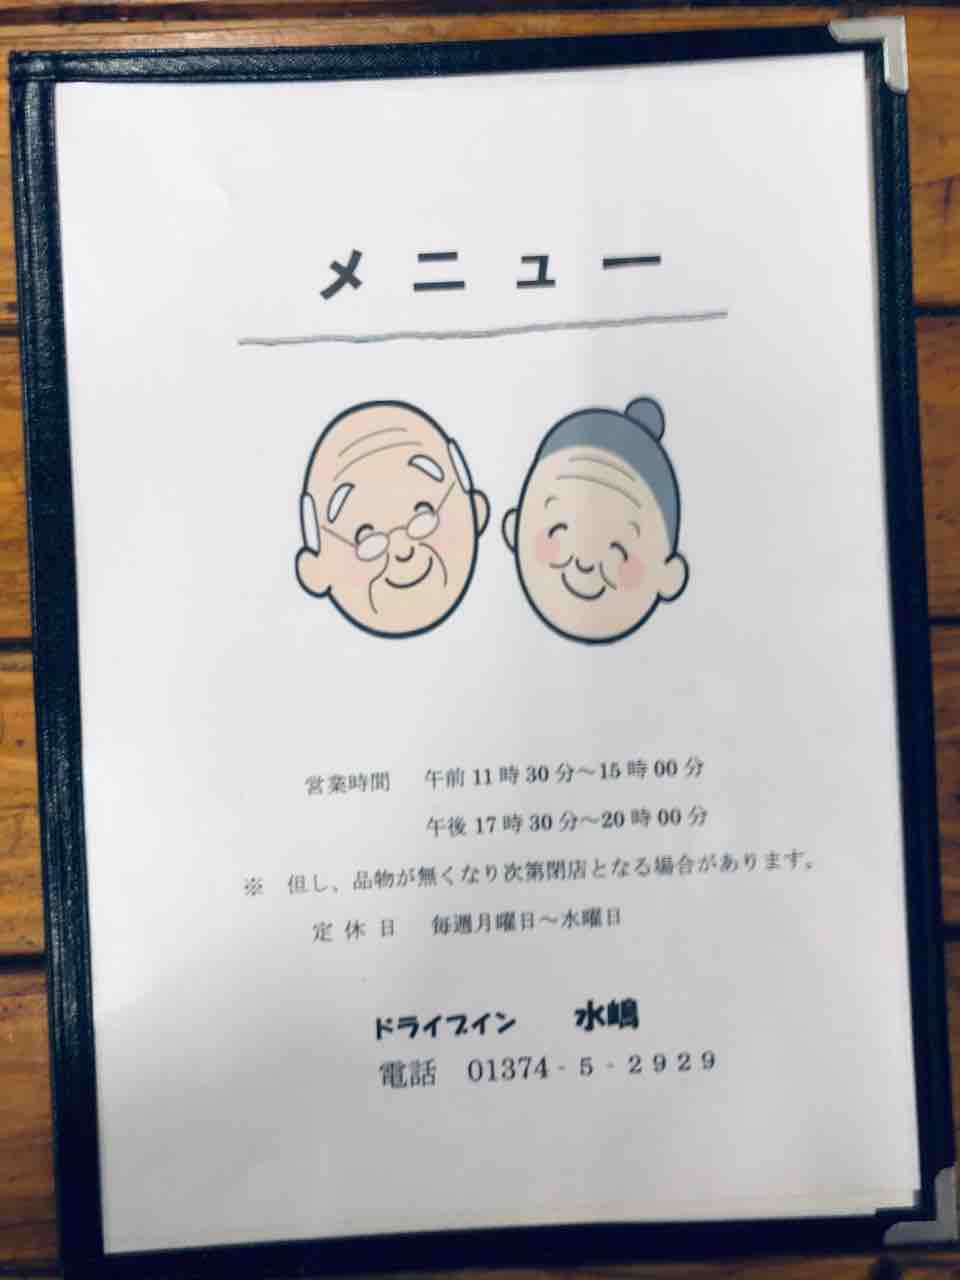 メニュー
営業時間 午前11時30分～15時00分
午後17時30分～20時00分
※ 但し、品物が無くなり次第閉店となる場合があります。
定休日 毎週月曜日～水曜日
ドライブイン 水嶋
電話 01374-5-2929